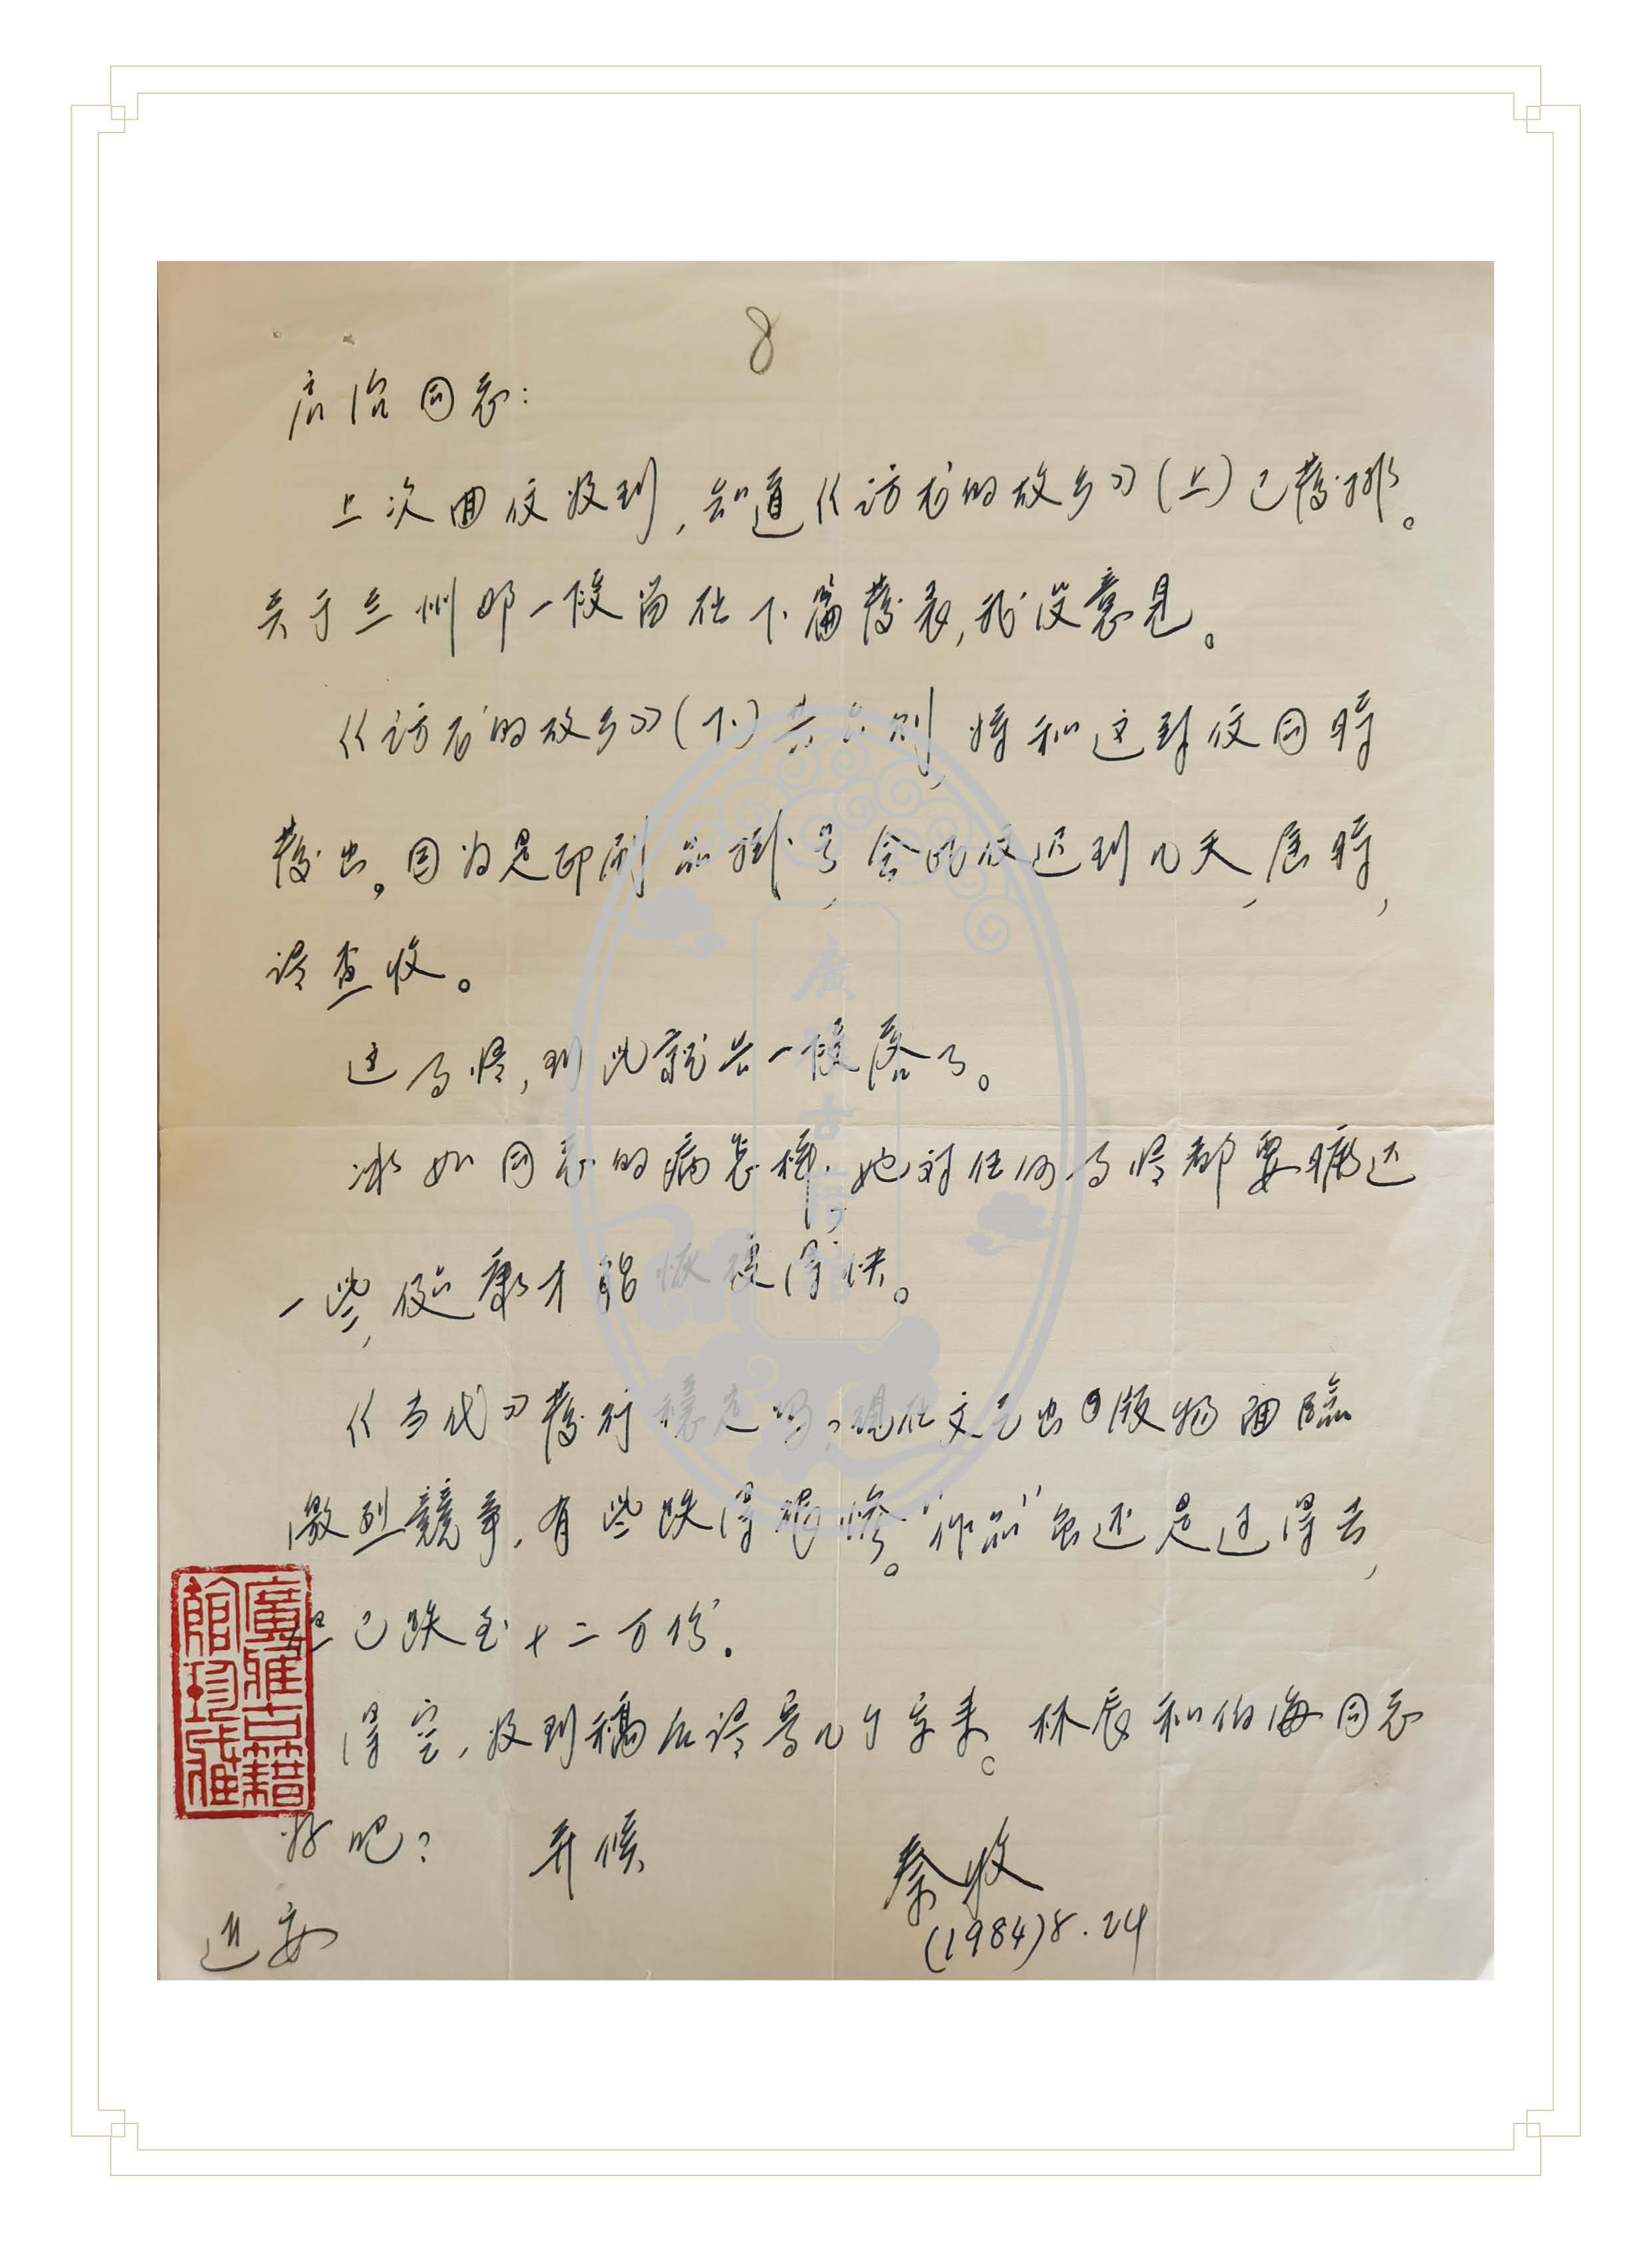 8
启治同志:
上次回信收到,知道《访龙的故乡》(上)已發排。
关于兰州那一段留在下篇發表,我没意见。
《访龙的故乡》(下)共六则,将和这封信同時
發出。因为是印刷品掛号,会比信迟到几天,届時,
请查收。
这事情,到此就告一段落了。
冰如同志的病怎样,她对任何事情都要曠达
一些,健康才能恢復得快。
《当代》發行穩定吗?现在文艺出版物面臨
激烈競争,有些跌得很惨。“作品”虽还是过得去,
但已跌至十二万份.
得空,收到稿后请写几个字来。林辰和伯海同志
好吧? 并候
近安
秦牧
(1984)8.24
廣雅古籍館珍藏